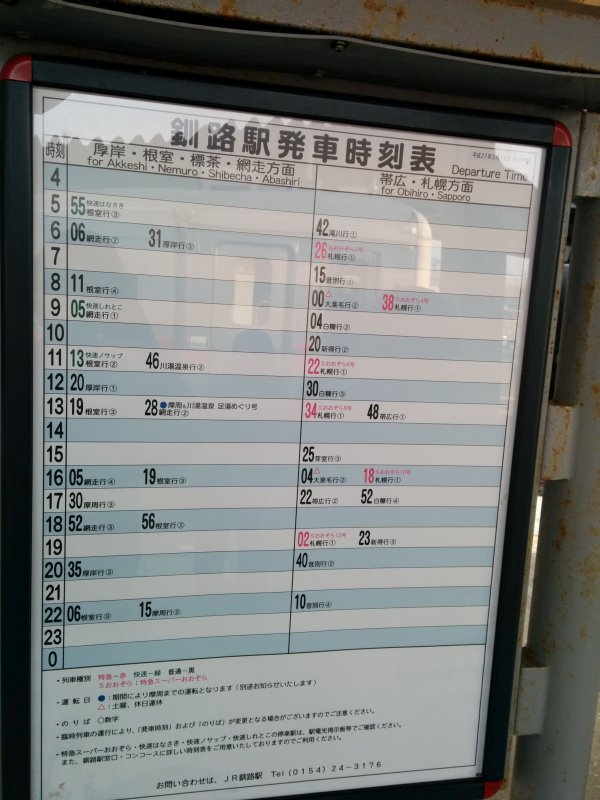 釧路駅発車時刻表
Departure Time
時刻 厚岸・根室・標茶・網走方面 帯広・札幌方面
for Akkeshi・Nemuro・Shibecha・Abashiri for Obihiro・Sapporo
4
5 55 快速はなさき 根室行③
6 06 網走行② 31 厚岸行③ 42 滝川行①
7 26 Sおおぞら2号 札幌行①
8 11 根室行④ 15 音別行①
9 05 快速しれとこ 網走行① 00 △ 大楽毛行② 38 Sおおぞら4号 札幌行①
10 04 白糠行②
11 13 快速ノサップ 根室行② 46 川湯温泉行② 20 新得行② 22 Sおおぞら6号 札幌行①
12 20 厚岸行① 30 白糠行③
13 19 根室行③ 28 ●摩周&川湯温泉 足湯めぐり号 網走行② 34 Sおおぞら8号 札幌行① 48 帯広行①
14
15 25 芽室行③
16 05 網走行④ 19 根室行③ 04 △ 大楽毛行② 18 Sおおぞら10号 札幌行①
17 30 摩周行③ 22 帯広行② 52 白糠行④
18 52 網走行③ 56 根室行②
19 02 Sおおぞら12号 札幌行① 23 新得行③
20 35 厚岸行③ 40 音別行②
21
22 06 根室行③ 15 摩周行② 10 音別行④
23
0
・列車種別 特急－赤 快速－緑 普通－黒
Sおおぞら：特急スーパーおおぞら
・運転日 ●：期間により摩周までの運転となります（別途お知らせいたします）
△：土曜、休日運休
・のりば ○数字
・臨時列車の運行により、「発車時刻」および「のりば」が変更となる場合がございますのでご注意ください。
・特急スーパーおおぞら・快速はなさき・快速ノサップ・快速しれとこの停車駅は、駅電光掲示板等でご確認ください。
また、釧路駅窓口・コンコースに詳しい時刻表をご用意いたしておりますのでご利用ください。
お問い合わせは、JR釧路駅 Tel（0154）24－3176